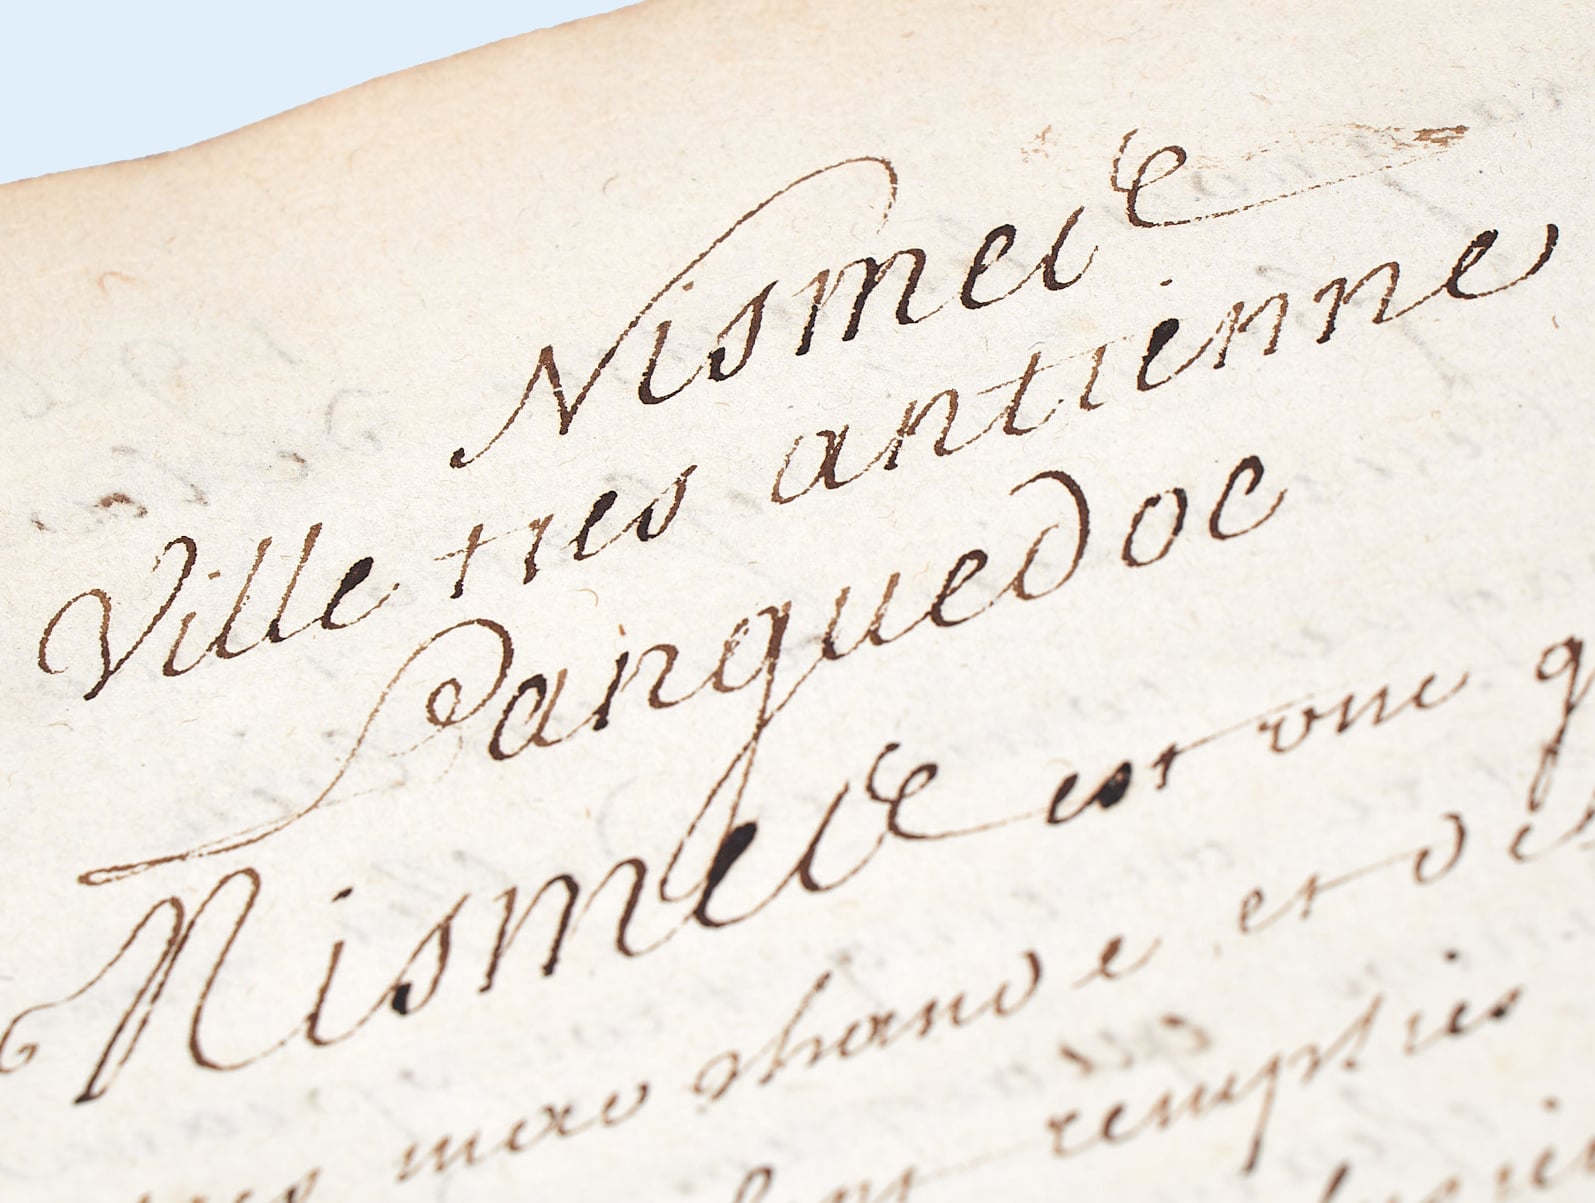 Nismes
Ville tres antienne
Languedoc
Nismes est vne
marchande et
remplies